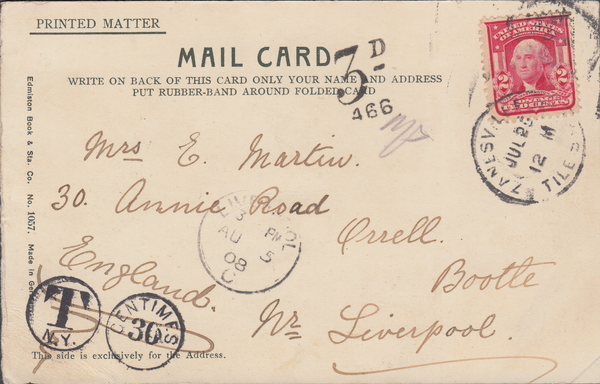 PRINTED MATTER
MAIL CARD
WRITE ON BACK OF THIS CARD ONLY YOUR NAME AND ADDRESS
PUT RUBBER-BAND AROUND FOLDED CARD
3D
466
UNITED STATES
OF AMERICA
2 2
POSTAGE
TWO CENTS
JUL 25
12 M
Mrs E. Martin.
30. Annie Road
Orrell.
Bootte
England.
Nr. Liverpool.
LIVERPOOL
3 PM
AU 5
08
C
T
N.Y.
CENTIMES
30
Edmiston Book & Sta. Co. No. 1057. Made in
This side is exclusively for the Address.